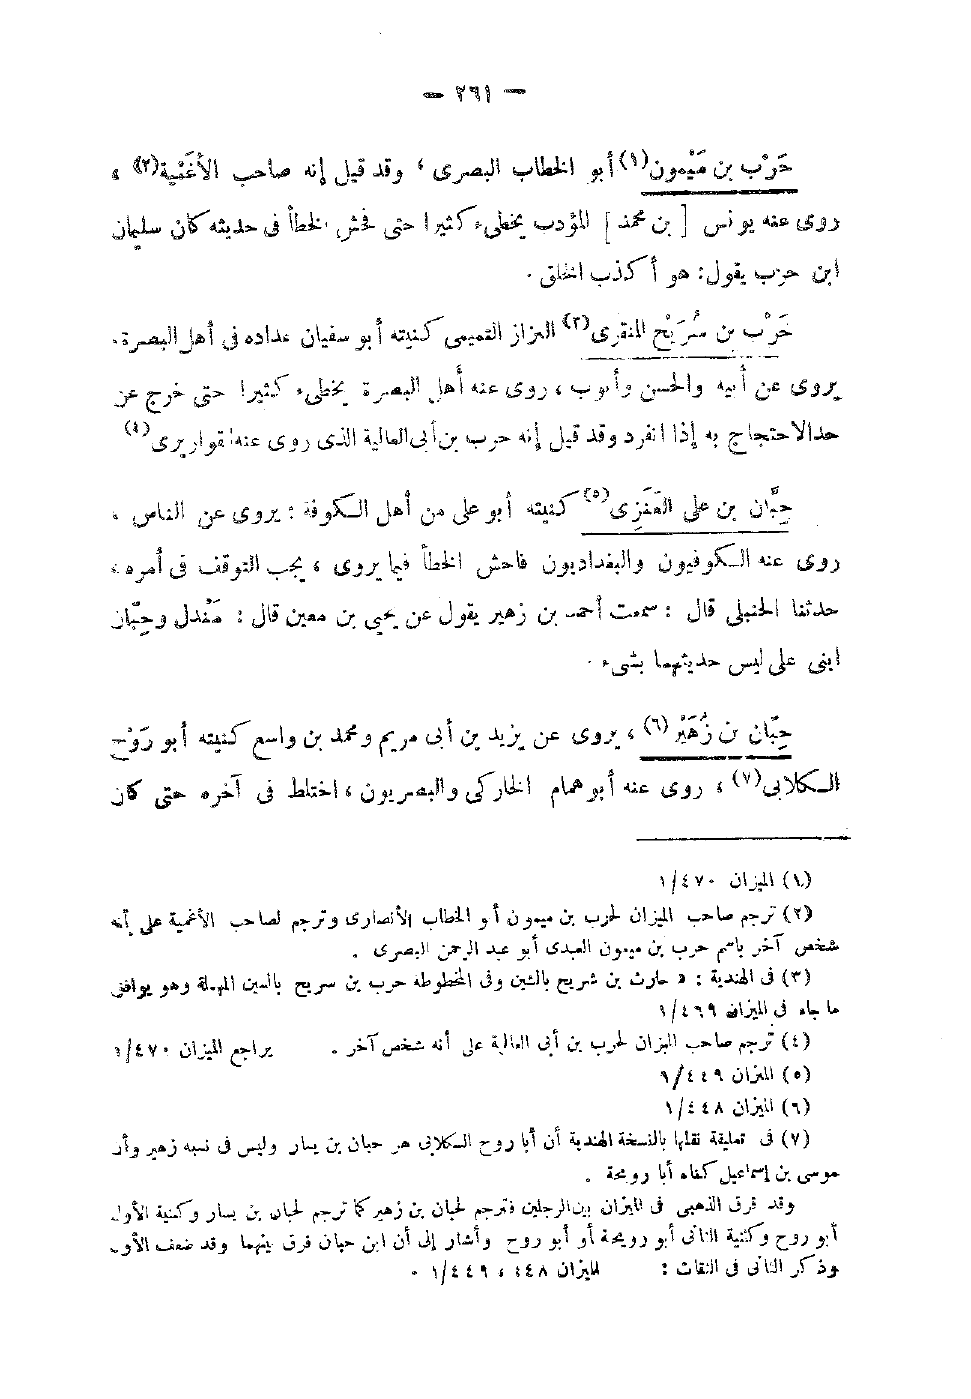 — ٢٦١ —
حَرْب بن مَيْمون(١) أبو الخطاب البصرى ، وقد قيل إنه صاحب الأغْمية(٢) ،
روى عنه يونس [ بن محمد ] المؤدب يخطىء كثيرا حتى فحش الخطأ فى حديثه كان سليمان
ابن حرب يقول: هو أكذب الخلق .
حَرْب بن سُرَيْج المنقرى(٣) البزاز التميمى كنيته أبو سفيان عداده فى أهل البصرة.
يروى عن أبيه والحسن وأيوب ، روى عنه أهل البصرة يخطىء كثيرا حتى خرج عن
حد الاحتجاج به إذا انفرد وقد قيل إنه حرب بن أبى العالية الذى روى عنه القواريرى(٤)
حِبَّان بن على العَنَزِى(٥) كنيته أبو على من أهل الكوفة : يروى عن الناس ،
روى عنه الكوفيون والبغداديون فاحش الخطأ فيما يروى ، يجب التوقف فى أمره ،
حدثنا الحنبلى قال : سمعت أحمد بن زهير يقول عن يحيى بن معين قال : مَنْدل وحِبَّان
ابنى على ليس حديثهما بشىء .
حِبَّان بن زُهَيْر(٦) ، يروى عن يزيد بن أبى مريم ومحمد بن واسع كنيته أبو رَوْح
الكلابى(٧) ، روى عنه أبو همام الخاركى والبصريون ، اختلط فى آخره حتى كان
(١) الميزان ١/٤٧٠
(٢) ترجم صاحب الميزان لحرب بن ميمون أبو الخطاب الأنصارى وترجم لصاحب الأغمية على أنه
شخص آخر باسم حرب بن ميمون العبدى أبو عبد الرحمن البصرى .
(٣) فى الهندية : « حارث بن شريح بالشين وفى المخطوطة حرب بن سريج بالسين المهملة وهو يوافق
ما جاء فى الميزان ١/٤٦٩
(٤) ترجم صاحب الميزان لحرب بن أبى العالية على أنه شخص آخر . يراجع الميزان ١/٤٧٠
(٥) الميزان ١/٤٤٩
(٦) الميزان ١/٤٤٨
(٧) فى تعليقة نقلها بالنسخة الهندية أن أبا روح الكلابى هو حبان بن يسار وليس فى نسبه زهير وأن
موسى بن إسماعيل كناه أبا رويحة .
وقد فرق الذهبى فى الميزان بين الرجلين فترجم لحبان بن زهير كما ترجم لحبان بن يسار وكنية الأول
أبو روح وكنية الثانى أبو رويحة أو أبو روح وأشار إلى أن ابن حبان فرق بينهما وقد ضعف الأول
وذكر الثانى فى الثقات : الميزان ٤٤٨ ، ١/٤٤٩ .